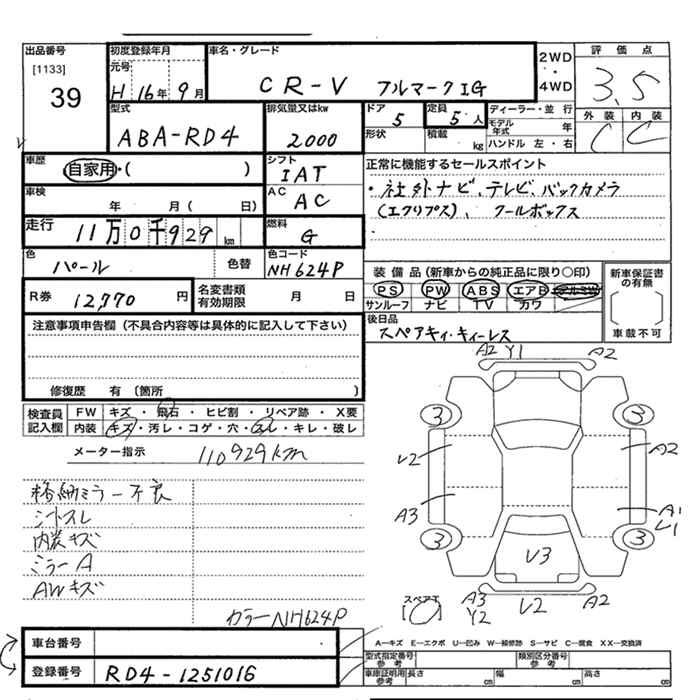 出品番号
[1133]
39
初度登録年月
元号
H 16年 9月
車名・グレード
CR-V フルマークiG
2WD
・
4WD
評価点
3.5
外装 内装
C C
型式
ABA-RD4
排気量又はkw
2000
ドア
5
定員
5人
形状
積載
kg
ディーラー・並行
モデル年式 年
ハンドル 左・右
車歴
自家用・( )
シフト
IAT
車検
年 月( 日)
AC
AC
走行
11万0千929km
燃料
G
色
パール
色替
色コード
NH624P
R券 12,770円
名変書類
有効期限
月 日
正常に機能するセールスポイント
・社外ナビ、テレビ、バックカメラ
(エクリプス)、クールボックス
装備品(新車からの純正品に限り○印)
PS PW ABS エアB アルミW
サンルーフ ナビ TV カワ
新車保証書
の有無
車載不可
後日品
スペアキィ・キィーレス
注意事項申告欄(不具合内容等は具体的に記入して下さい)
修復歴 有〔箇所 〕
検査員
記入欄
FW キズ・飛石・ヒビ割・リペア跡・X要
内装 キズ・汚レ・コゲ・穴・スレ・キレ・破レ
メーター指示
110929km
格納ミラー不良
シートスレ
内装キズ
ミラーA
AWキズ
カラーNH624P
A2 Y1 A2
3 3
U2 A2
A3 A1
U1
3 3
U3
スペアタ
A3
Y2
U2 A2
車台番号
登録番号
RD4-1251016
A-キズ E-エクボ U-凹み W-補修跡 S-サビ C-腐食 XX-交換済
型式指定番号
参考
類別区分番号
参考
車庫証明用
参考
長さ cm 幅 cm 高さ cm